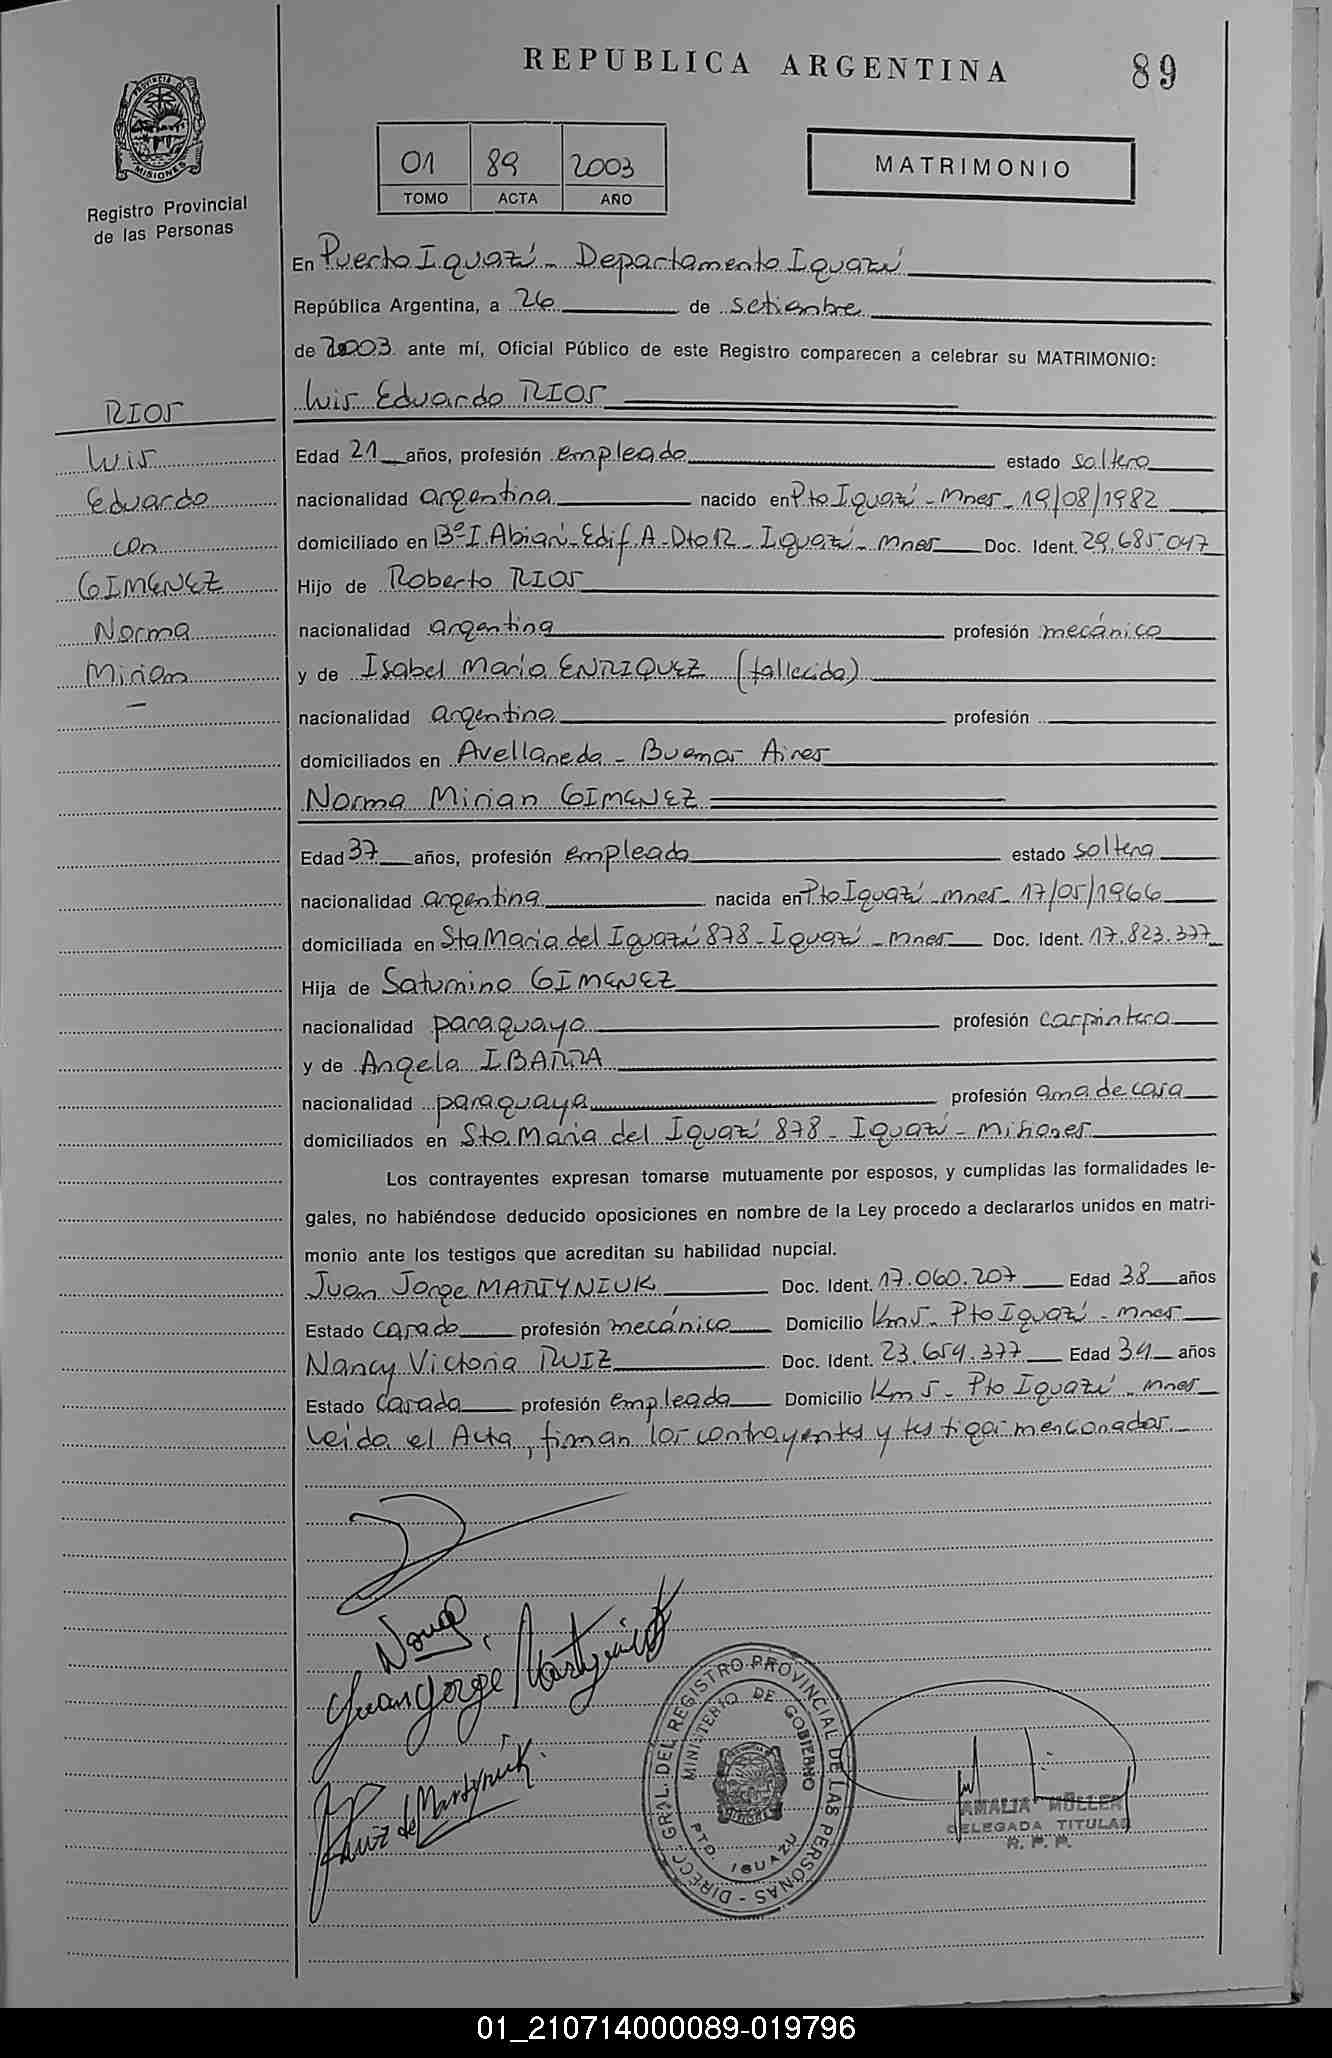 REPUBLICA ARGENTINA
89
PROVINCIA DE
MISIONES
Registro Provincial
de las Personas
01 89 2003
TOMO ACTA AÑO
MATRIMONIO
En Puerto Iguazú - Departamento Iguazú
República Argentina, a 26 de setiembre
de 2003 ante mí, Oficial Público de este Registro comparecen a celebrar su MATRIMONIO:
RIOS
Luis
Eduardo
con
GIMENEZ
Norma
Mirian
Luis Eduardo RIOS
Edad 21 años, profesión empleado estado soltero
nacionalidad argentina nacido en Pto Iguazú - Mnes - 19/08/1982
domiciliado en Bº I. Abiari - Edif. A - Dto 12 - Iguazú - Mnes Doc. Ident. 29.685.047
Hijo de Roberto RIOS
nacionalidad argentina profesión mecánico
y de Isabel María ENRIQUEZ (fallecida)
nacionalidad argentina profesión
domiciliados en Avellaneda - Buenos Aires
Norma Mirian GIMENEZ
Edad 37 años, profesión empleada estado soltera
nacionalidad argentina nacida en Pto Iguazú - Mnes - 17/05/1966
domiciliada en Sta María del Iguazú 878 - Iguazú - Mnes Doc. Ident. 17.823.377
Hija de Saturnino GIMENEZ
nacionalidad paraguayo profesión carpintero
y de Angela IBARRA
nacionalidad paraguaya profesión ama de casa
domiciliados en Sta. María del Iguazú 878 - Iguazú - Misiones
Los contrayentes expresan tomarse mutuamente por esposos, y cumplidas las formalidades le-
gales, no habiéndose deducido oposiciones en nombre de la Ley procedo a declararlos unidos en matri-
monio ante los testigos que acreditan su habilidad nupcial.
Juan Jorge MARTYNIUK Doc. Ident. 17.060.207 Edad 38 años
Estado casado profesión mecánico Domicilio Km 5 - Pto Iguazú - Mnes
Nancy Victoria RUIZ Doc. Ident. 23.659.377 Edad 34 años
Estado casada profesión empleada Domicilio Km 5 - Pto Iguazú - Mnes
Leida el Acta, firman los contrayentes y testigos mencionados.
Juan Jorge Martyniuk
Ruiz de Martyniuk
DIRECC. GRAL. DEL REGISTRO PROVINCIAL DE LAS PERSONAS
MINISTERIO DE GOBIERNO
PTO. IGUAZU
AMALIA MÜLLER
DELEGADA TITULAR
R. P. P.
01_210714000089-019796